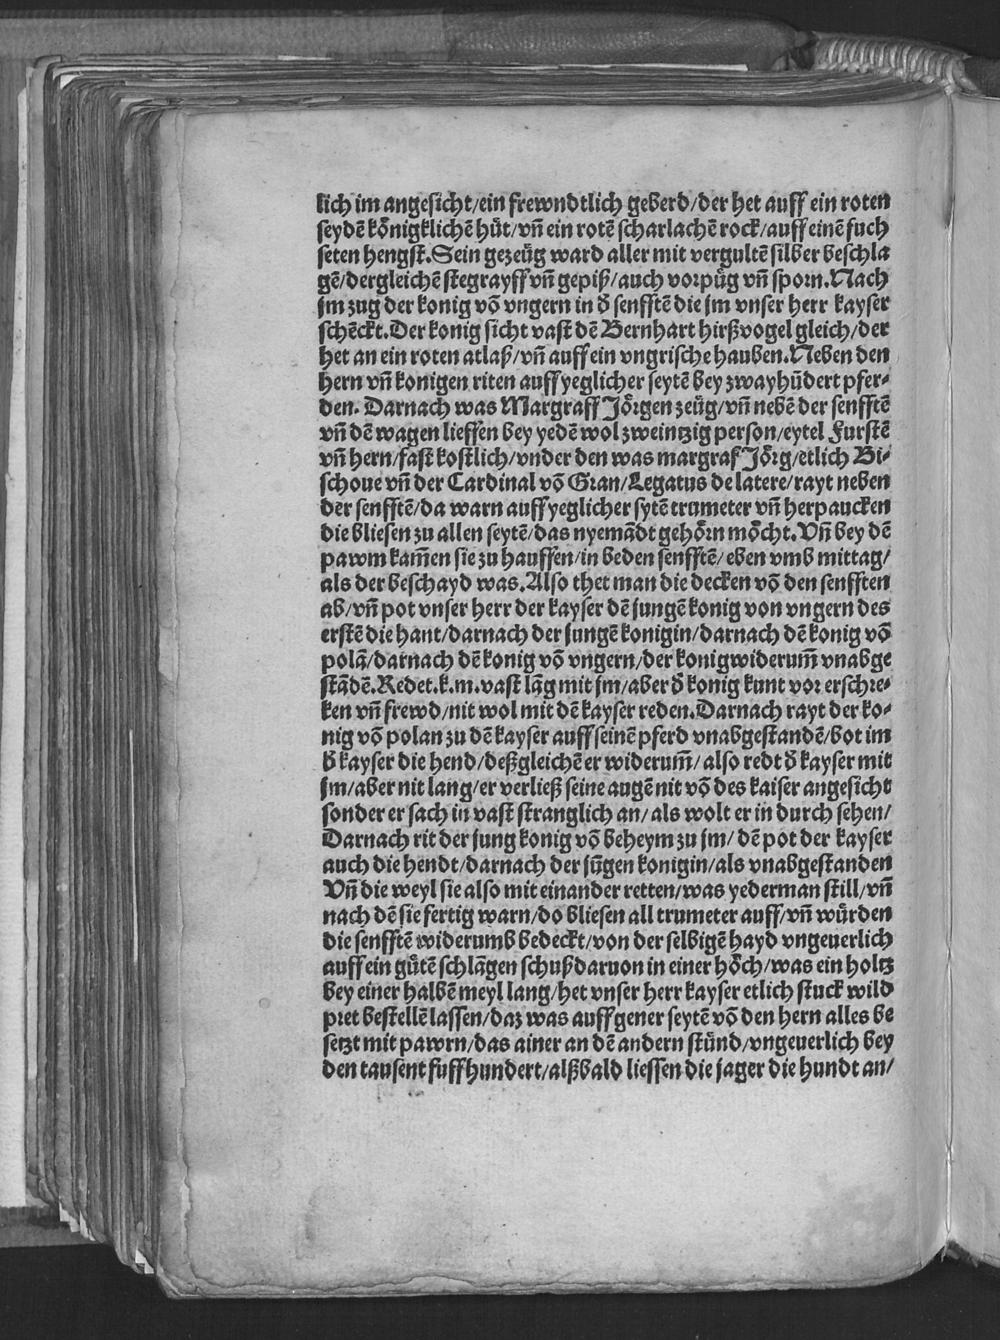 lich im angesicht/ein frewndtlich geberd/der het auff ein roten
seydē kônigklichē hůt/vñ ein rotē scharlachē rock/auff einē fuch
seten hengst. Sein gezeüg ward aller mit vergultē silber beschla
gē/dergleichē stegrayff vñ gepiß/auch vorpüg vñ sporn. Nach
jm zug der konig vō vngern in d̄ senfftē die jm vnser herr kayser
schēckt. Der konig sicht vast dē Bernhart hirßvogel gleich/der
het an ein roten atlaß/vñ auff ein vngrische hauben. Neben den
hern vñ konigen riten auff yeglicher seytē bey zwayhūdert pfer⸗
den. Darnach was Margraff Jôrgen zeüg/vñ nebē der senfftē
vñ dē wagen lieffen bey yedē wol zweintzig person/eytel Furstē
vñ hern/fast kostlich/vnder den was margraf Jôrg/etlich Bi⸗
schoue vñ der Cardinal vō Gran/Legatus de latere/rayt neben
der senfftē/da warn auff yeglicher sytē trumeter vñ herpaucken
die bliesen zu allen seytē/das nyemādt gehôrn môcht. Vñ bey dē
pawm kam̄en sie zu hauffen/in beden senfftē/eben vmb mittag/
als der beschayd was. Also thet man die decken vō den senfften
ab/vñ pot vnser herr der kayser dē jungē konig von vngern des
erstē die hant/darnach der jungē konigin/darnach dē konig vō
polā/darnach dē konig vō vngern/der konig widerum̄ vnabge
stādē. Redet. k. m. vast lāg mit jm/aber d̄ konig kunt vor erschre⸗
ken vñ frewd/nit wol mit dē kayser reden. Darnach rayt der ko⸗
nig vō polan zu dē kayser auff seinē pferd vnabgestandē/bot im
d̄ kayser die hend/deßgleichē er widerum̄/also redt d̄ kayser mit
jm/aber nit lang/er verließ seine augē nit vō des kaiser angesicht
sonder er sach in vast stranglich an/als wolt er in durch sehen/
Darnach rit der jung konig vō beheym zu jm/dē pot der kayser
auch die hendt/darnach der jūgen konigin/als vnabgestanden
Vñ die weyl sie also mit einander retten/was yederman still/vñ
nach dē sie fertig warn/do bliesen all trumeter auff/vñ würden
die senfftē widerumb bedeckt/von der selbigē hayd vngeuerlich
auff ein gůtē schlāgen schuß daruon in einer hôch/was ein holtz
bey einer halbē meyl lang/het vnser herr kayser etlich stuck wild
pret bestellē lassen/daz was auff gener seytē vō den hern alles be
setzt mit pawrn/das ainer an dē andern stůnd/vngeuerlich bey
den tausent fuffhundert/alßbald liessen die jager die hundt an/